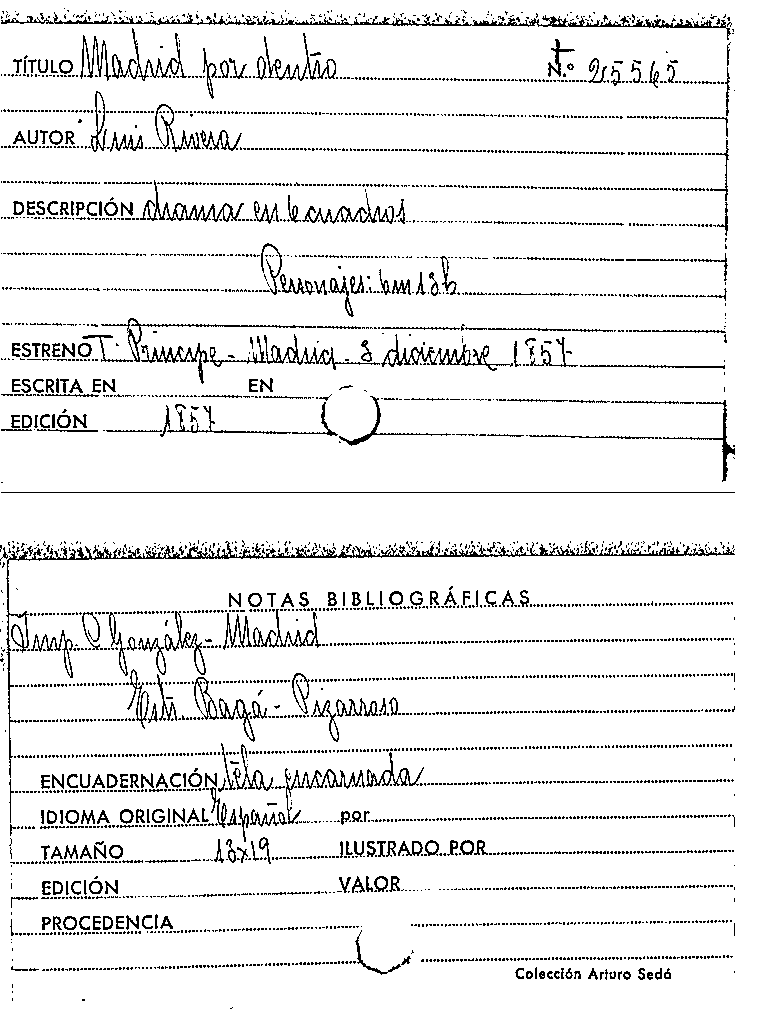 TÍTULO Madrid por dentro N.º 25565
AUTOR Luis Rivera
DESCRIPCIÓN drama en 6 cuadros
Personajes: 6m 13h
ESTRENO T. Príncipe - Madrid - 3 diciembre 1857
ESCRITA EN EN
EDICIÓN 1857
NOTAS BIBLIOGRÁFICAS
Imp C González - Madrid
Estr Bagá - Pizarroso
ENCUADERNACIÓN tela encarnada
IDIOMA ORIGINAL Español por
TAMAÑO 13x19 ILUSTRADO POR
EDICIÓN VALOR
PROCEDENCIA
Colección Arturo Sedó